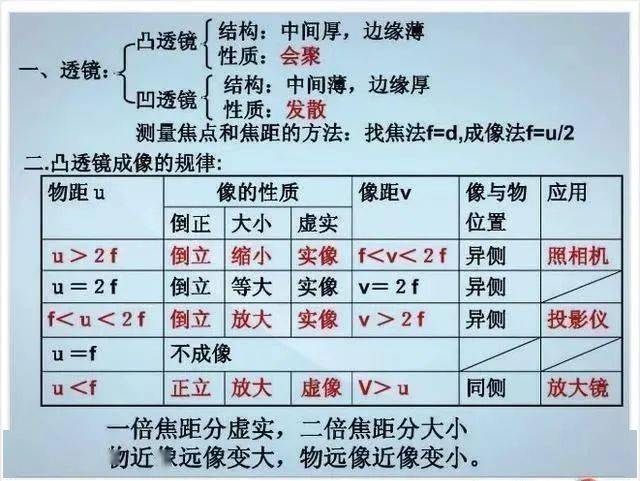 一、透镜：
凸透镜
结构：中间厚，边缘薄
性质：会聚
凹透镜
结构：中间薄，边缘厚
性质：发散
测量焦点和焦距的方法：找焦法f=d,成像法f=u/2
二.凸透镜成像的规律:
物距 u 像的性质 像距v 像与物位置 应用
倒正 大小 虚实
u＞2f 倒立 缩小 实像 f＜v＜2f 异侧 照相机
u＝2f 倒立 等大 实像 v＝2f 异侧
f＜u＜2f 倒立 放大 实像 v＞2f 异侧 投影仪
u＝f 不成像
u＜f 正立 放大 虚像 V＞u 同侧 放大镜
一倍焦距分虚实，二倍焦距分大小
物近像远像变大，物远像近像变小。